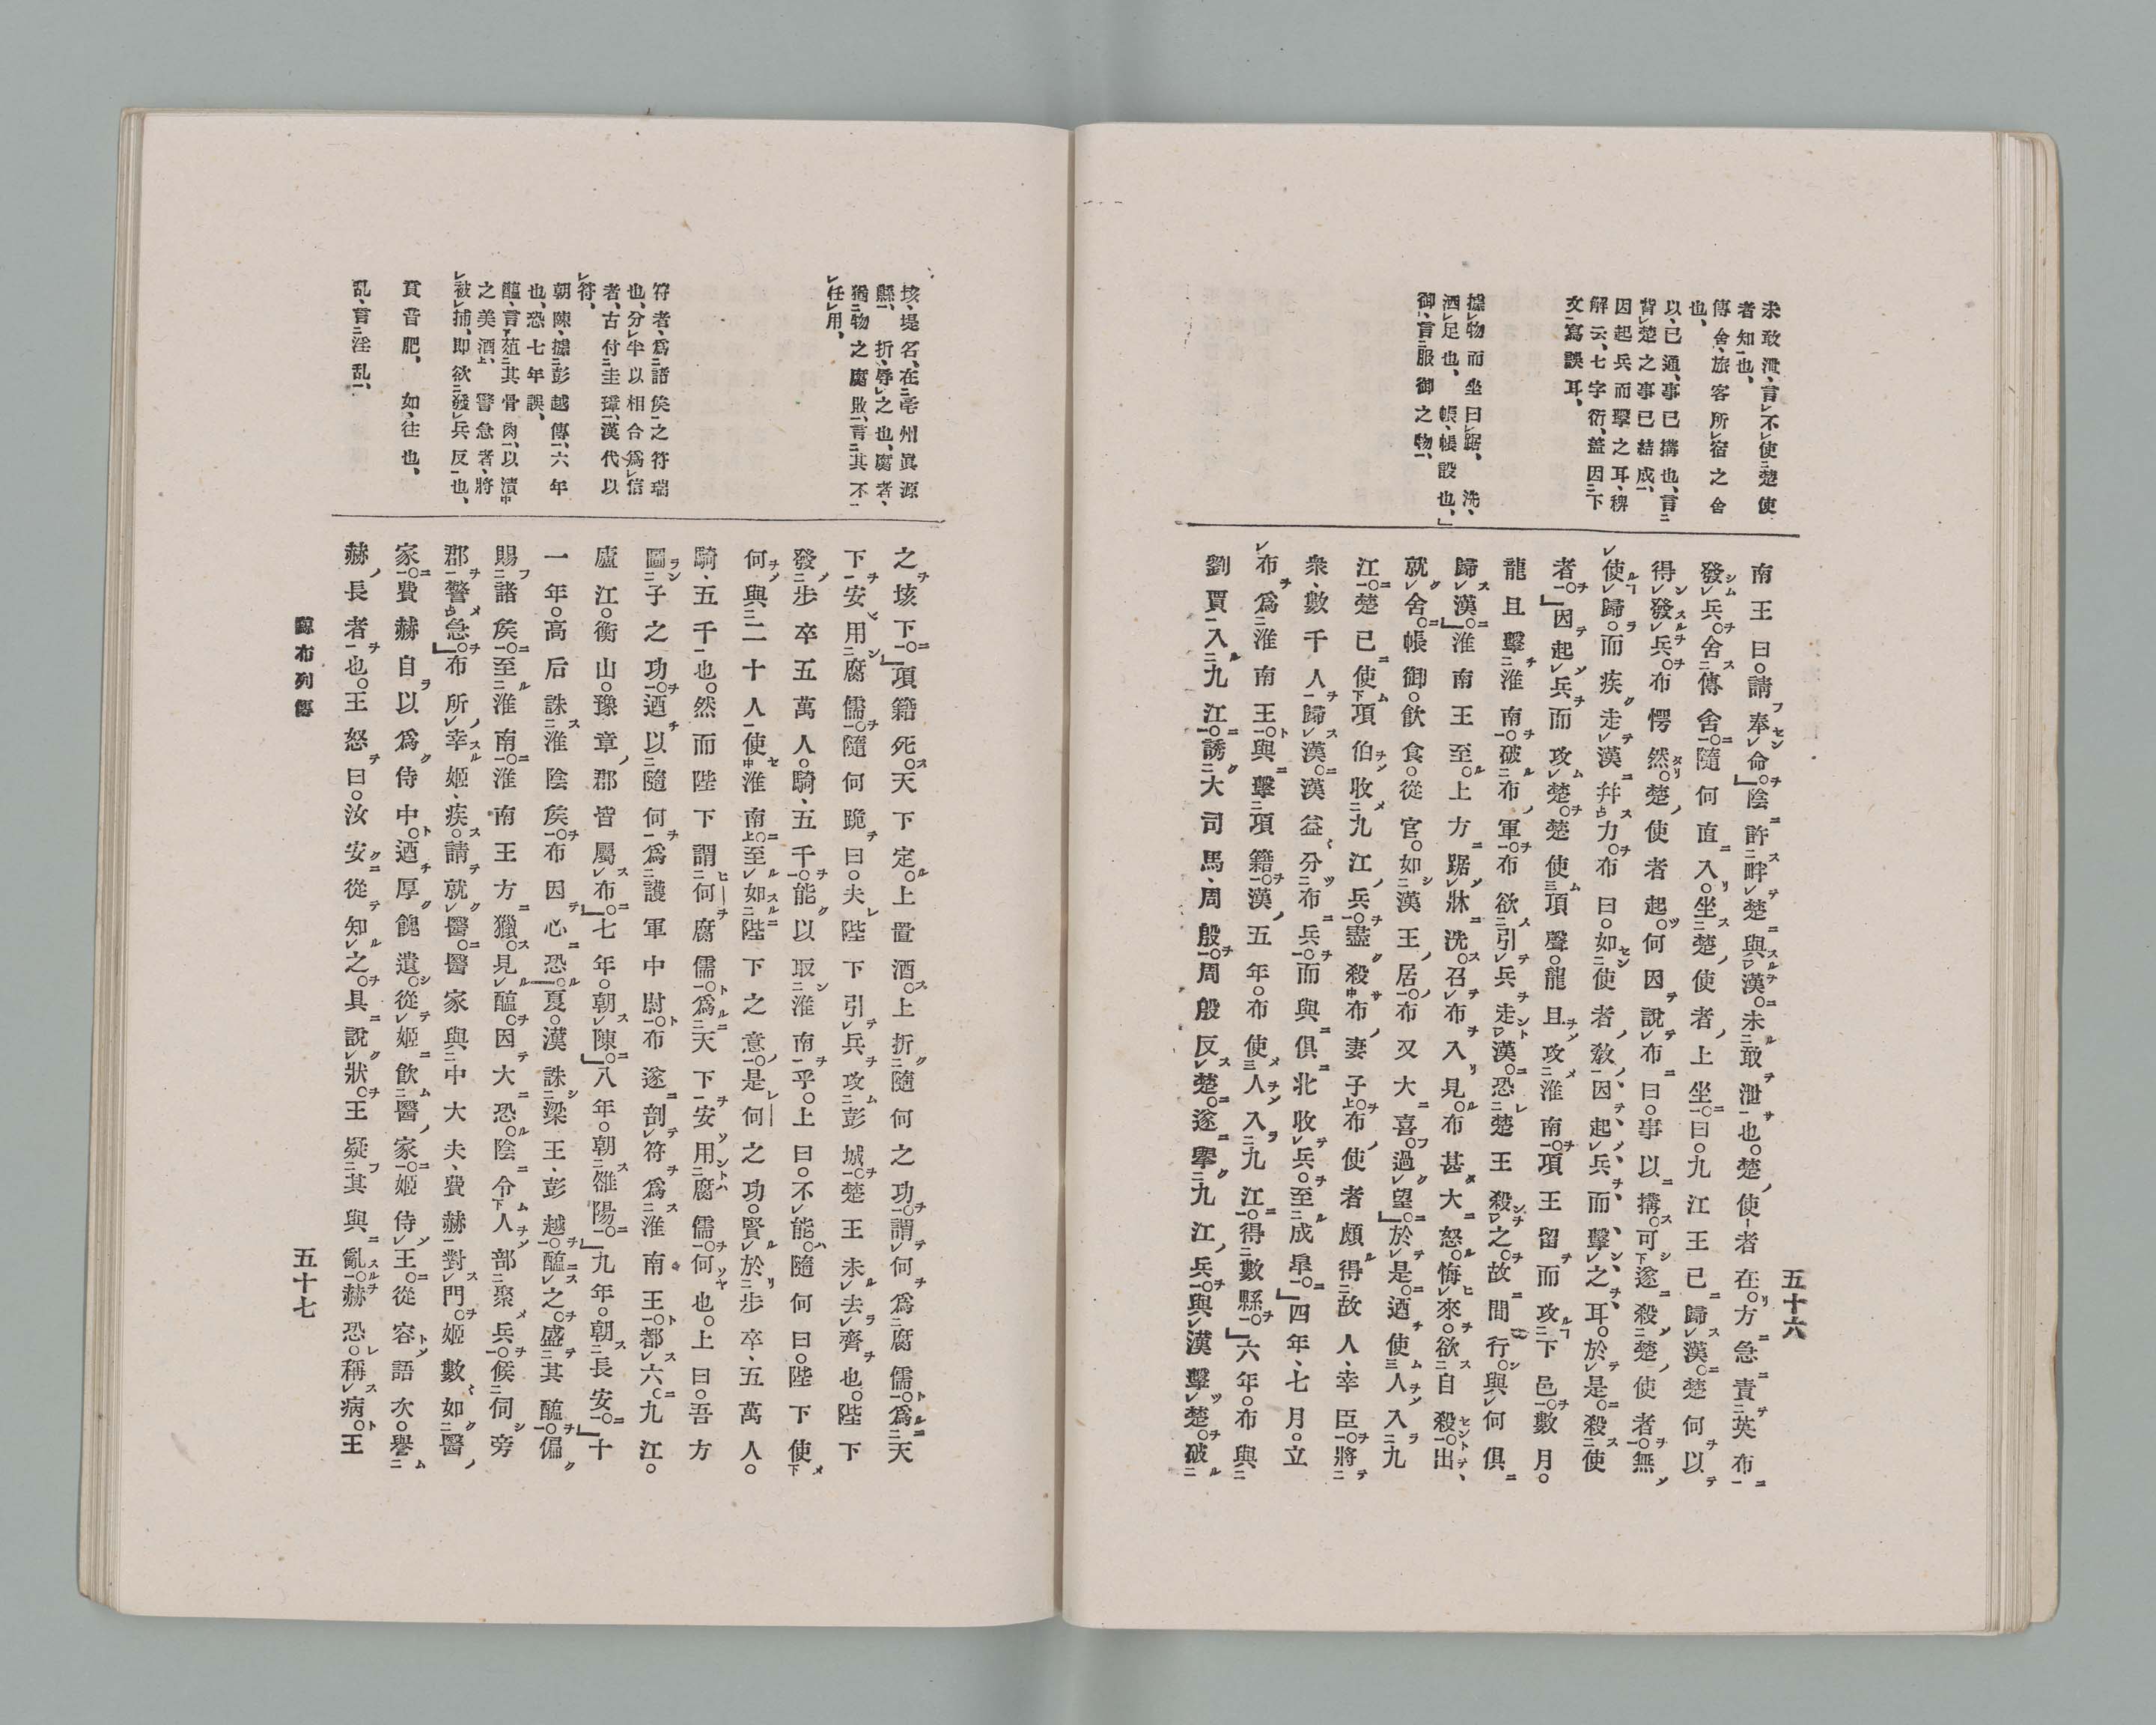 五十六
未敢泄、言不使楚使
者知也、
傳舍、旅客所宿之舍
也、
以、已通、事已搆也、言
背楚之事已結成、
因起兵而擊之耳、稗
解云、七字衍、蓋因下
文寫誤耳、
據物而坐曰踞、洗、
洒足也、帳、帳設也、」
御、言服御之物、
南王曰。請奉命。」陰許畔楚與漢。未敢泄也。楚使者在。方急責英布
發兵。舍傳舍。隨何直入。坐楚使者上坐。曰。九江王已歸漢。楚何以
得發兵。布愕然。楚使者起。何因說布曰。事以搆。可遂殺楚使者。無
使歸。而疾走漢幷力。布曰。如使者敎。因起兵而擊之耳。於是。殺使
者。」因起兵而攻楚。楚使項聲。龍且攻淮南。項王留而攻下邑。數月。
龍且擊淮南。破布軍。布欲引兵走漢。恐楚王殺之。故間行。與何俱
歸漢。」淮南王至。上方踞牀洗。召布入見。布甚大怒。悔來。欲自殺。出
就舍。帳御。飮食。從官。如漢王居。布又大喜。過望。」於是。迺使人入九
江。楚已使項伯收九江兵。盡殺布妻子。布使者頗得故人、幸臣。將
衆、數千人歸漢。漢益分布兵。而與俱北收兵。至成皐。」四年、七月。立
布爲淮南王。與擊項籍。漢五年。布使人入九江。得數縣。」六年。布與
劉賈入九江。誘大司馬、周殷。周殷反楚。遂擧九江兵。與漢擊楚。破
垓、堤名、在亳州眞源
縣、折、辱之也、腐者、
猶物之腐敗、言其不
任用、
符者、爲諸侯之符瑞
也、分半以相合爲信
者、古付圭璋、漢代以
符、
朝陳、據彭越傳、六年
也、恐七年誤、
醢、言葅其骨肉、以漬
之美酒、警急者、將
被捕、卽欲發兵反也、
賁音肥、如、往也、
乱、言淫乱、
之垓下。」項籍死。天下定。上置酒。上折隨何之功。謂何爲腐儒。爲天
下安用腐儒。隨何跪曰。夫陛下引兵攻彭城。楚王未去齊也。陛下
發步卒五萬人。騎、五千。能以取淮南乎。上曰。不能。隨何曰。陛下使
何與二十人使淮南。至如陛下之意。是何之功。賢於步卒、五萬人。
騎、五千也。然而陛下謂何腐儒。爲天下安用腐儒。何也。上曰。吾方
圖子之功。迺以隨何爲護軍中尉。布遂剖符爲淮南王。都六。九江。
廬江。衡山。豫章、郡皆屬布。」七年。朝陳。」八年。朝雒陽。」九年。朝長安。」十
一年。高后誅淮陰侯。布因心恐。夏。漢誅梁王、彭越。醢之。盛其醢。徧
賜諸侯。至淮南。淮南王方獵。見醢。因大恐。陰令人部聚兵。候伺旁
郡警急。」布所幸姬、疾。請就醫。醫家與中大夫、賁赫對門。姬數如醫
家。賁赫自以爲侍中。迺厚餽遺。從姬飮醫家。姬侍王。從容語次。譽
赫長者也。王怒曰。汝安從知之。具說狀。王疑其與亂。赫恐。稱病。王
黥布列傳
五十七